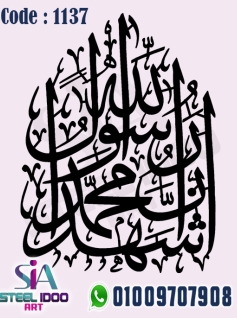 Code : 1137
أشهد أن محمدا رسول الله
SIA
STEEL IDOO
ART
01009707908